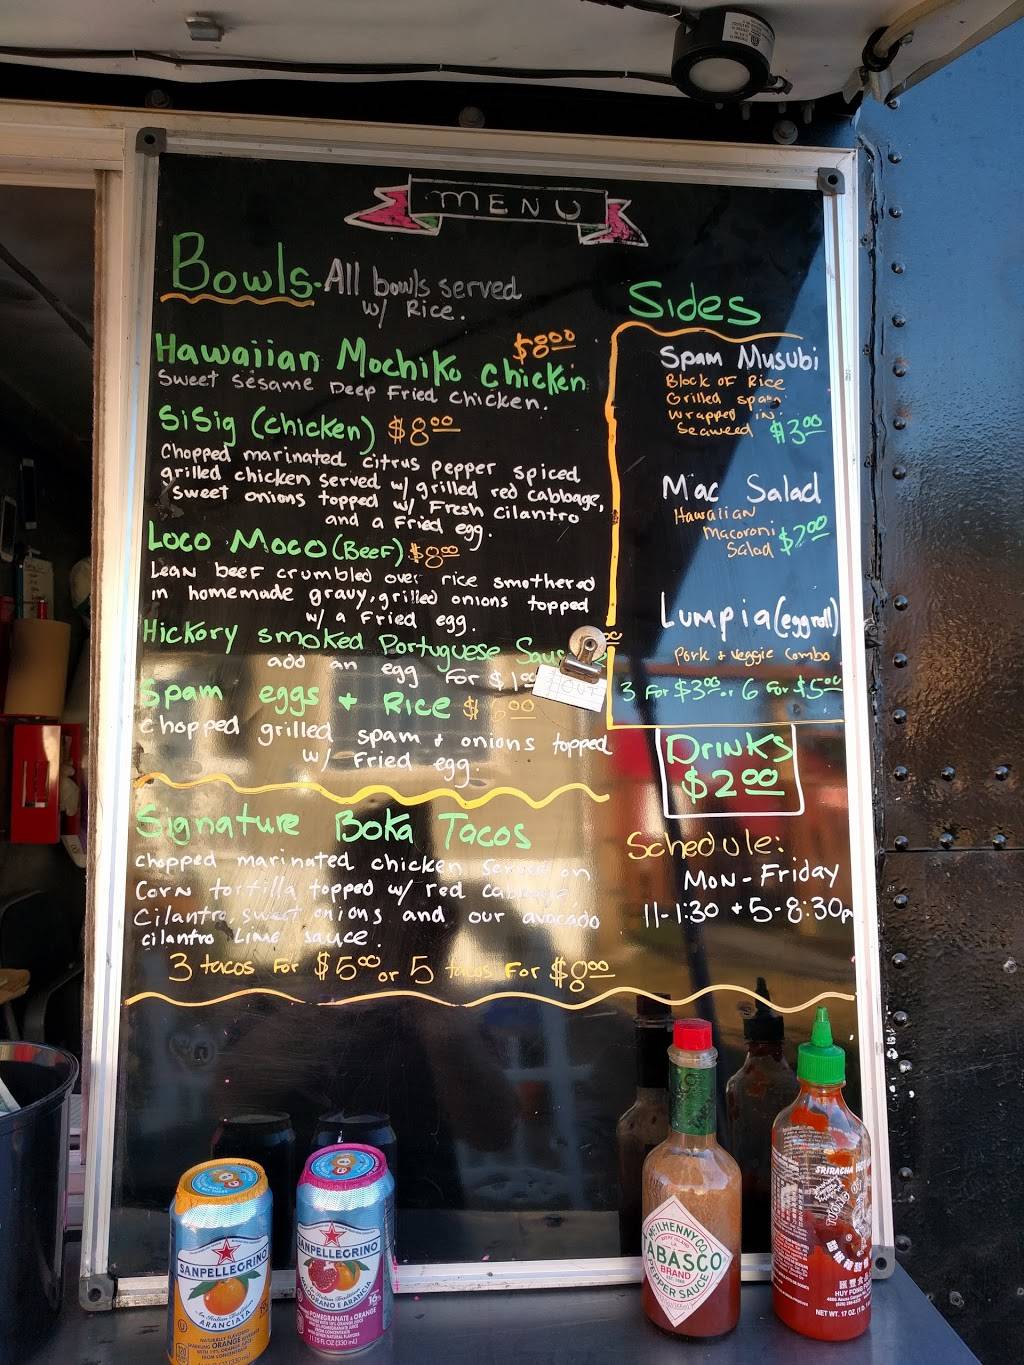 MENU
Bowls. All bowls served
w/ Rice.
Hawaiian Mochiko chicken $8.00
Sweet Sesame Deep Fried chicken.
SiSig (chicken) $8.00
Chopped marinated citrus pepper spiced
grilled chicken served w/ grilled red cabbage,
sweet onions topped w/ Fresh cilantro
and a Fried egg.
Loco Moco (Beef) $8.00
Lean beef crumbled over rice smothered
in homemade gravy, grilled onions topped
w/ a Fried egg.
Hickory smoked Portuguese
add an egg for
OUT
Spam eggs + Rice
chopped grilled spam + onions topped
w/ Fried egg.
Signature Boka Tacos
chopped marinated chicken served on
Corn tortilla topped w/ red cabbage,
Cilantro, sweet onions and our avocado
cilantro Lime sauce.
3 tacos For $5.00 or 5 tacos For $8.00
Sides
Spam Musubi
Block of Rice
Grilled spam
wrapped in
Seaweed $3.00
Mac Salad
Hawaiian
Macaroni
Salad $2.00
Lumpia (eggroll)
Pork + Veggie Combo
3 For $3.00 or 6 For $5.00
Drinks
$2.00
Schedule:
Mon - Friday
11-1:30 + 5-8:30pm
SANPELLEGRINO
ARANCIATA
SANPELLEGRINO
MELOGRANO E ARANCIA
POMEGRANATE & ORANGE
11.15 FL OZ (330 mL)
McILHENNY CO.
TABASCO
BRAND
PEPPER SAUCE
SRIRACHA HOT
HUY FONG
NET WT. 17 OZ.